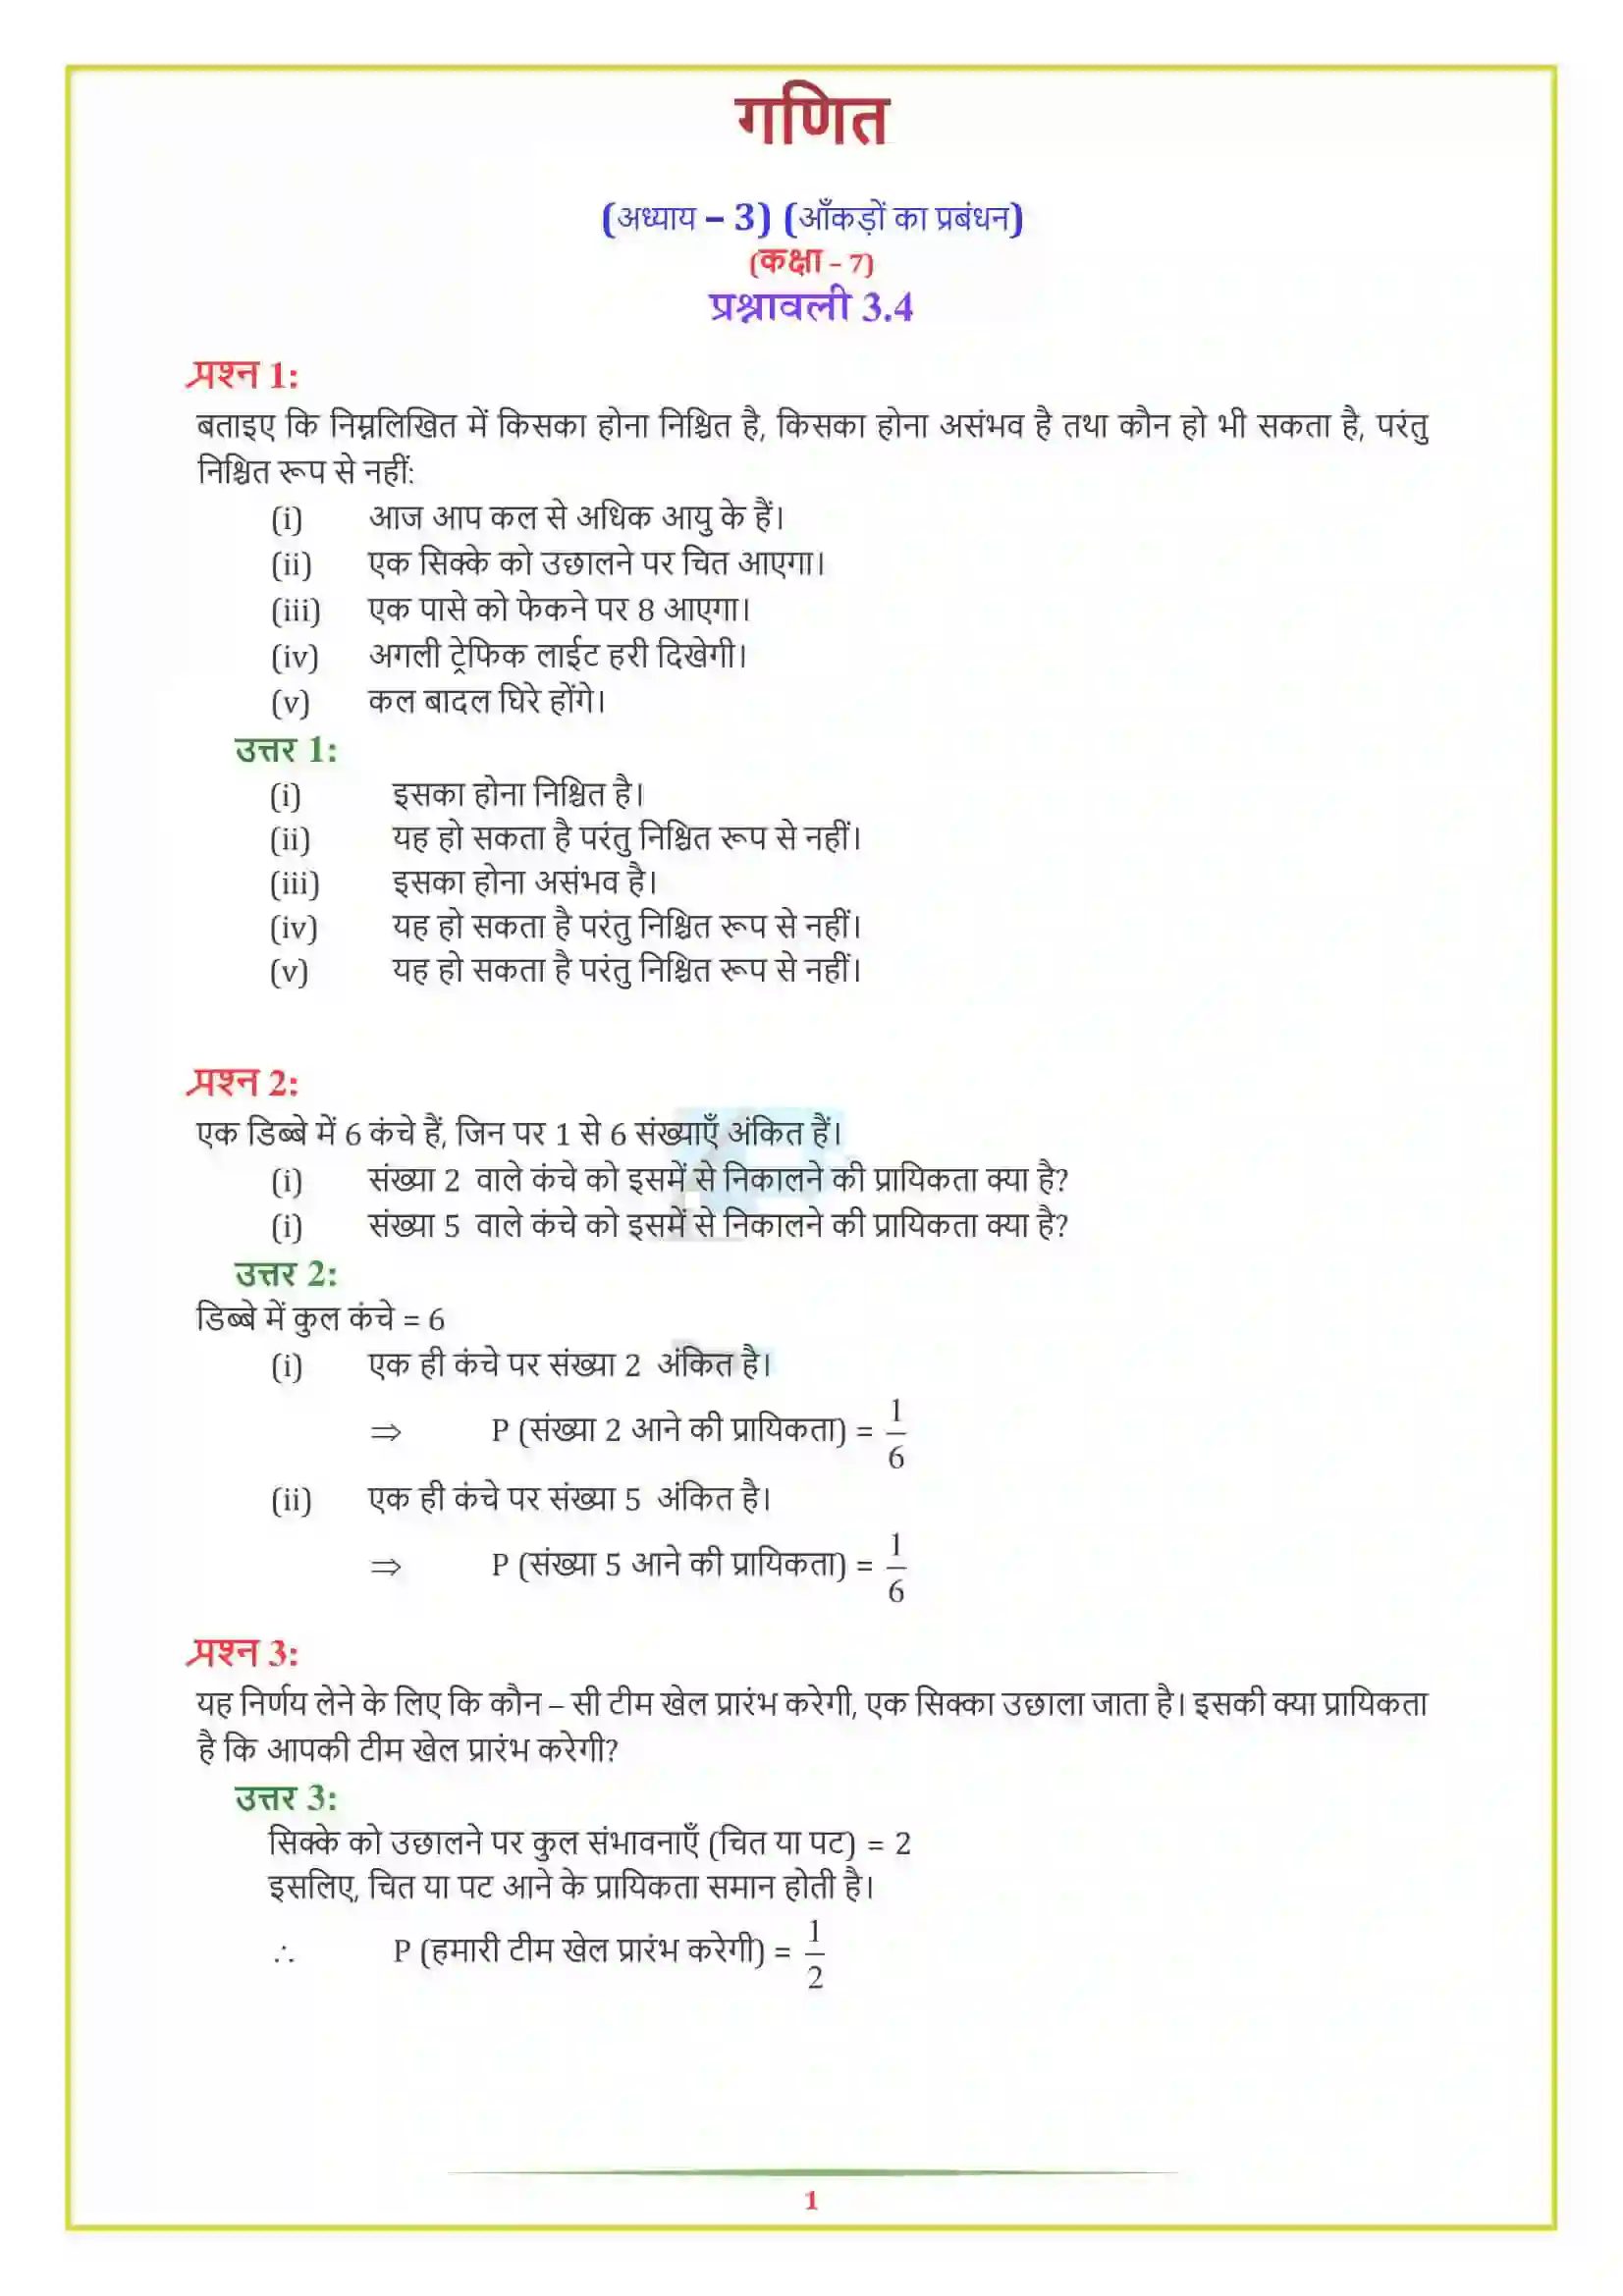 गणित
(अध्याय – 3) (आँकड़ों का प्रबंधन)
(कक्षा – 7)
प्रश्नावली 3.4
प्रश्न 1:
बताइए कि निम्नलिखित में किसका होना निश्चित है, किसका होना असंभव है तथा कौन हो भी सकता है, परंतु
निश्चित रूप से नहीं:
(i) आज आप कल से अधिक आयु के हैं।
(ii) एक सिक्के को उछालने पर चित आएगा।
(iii) एक पासे को फेकने पर 8 आएगा।
(iv) अगली ट्रेफिक लाईट हरी दिखेगी।
(v) कल बादल घिरे होंगे।
उत्तर 1:
(i) इसका होना निश्चित है।
(ii) यह हो सकता है परंतु निश्चित रूप से नहीं।
(iii) इसका होना असंभव है।
(iv) यह हो सकता है परंतु निश्चित रूप से नहीं।
(v) यह हो सकता है परंतु निश्चित रूप से नहीं।
प्रश्न 2:
एक डिब्बे में 6 कंचे हैं, जिन पर 1 से 6 संख्याएँ अंकित हैं।
(i) संख्या 2 वाले कंचे को इसमें से निकालने की प्रायिकता क्या है?
(i) संख्या 5 वाले कंचे को इसमें से निकालने की प्रायिकता क्या है?
उत्तर 2:
डिब्बे में कुल कंचे = 6
(i) एक ही कंचे पर संख्या 2 अंकित है।
⇒ P (संख्या 2 आने की प्रायिकता) = 1/6
(ii) एक ही कंचे पर संख्या 5 अंकित है।
⇒ P (संख्या 5 आने की प्रायिकता) = 1/6
प्रश्न 3:
यह निर्णय लेने के लिए कि कौन – सी टीम खेल प्रारंभ करेगी, एक सिक्का उछाला जाता है। इसकी क्या प्रायिकता
है कि आपकी टीम खेल प्रारंभ करेगी?
उत्तर 3:
सिक्के को उछालने पर कुल संभावनाएँ (चित या पट) = 2
इसलिए, चित या पट आने के प्रायिकता समान होती है।
∴ P (हमारी टीम खेल प्रारंभ करेगी) = 1/2
1